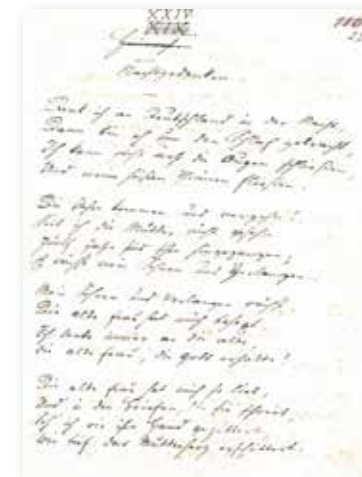 XXIV
XIX
Nachtgedanken.
Denk ich an Deutschland in der Nacht,
Dann bin ich um den Schlaf gebracht,
Ich kann nicht die Augen schließen,
Und meine heißen Thränen fließen.
Die Jahre kommen und vergehn!
Seit ich die Mutter nicht gesehn
Zwölf Jahre hingegangen;
Es wächst mein Sehnen und Verlangen.
Mein Sehnen und Verlangen wächst.
Die alte Frau hat mich behext
Ich denke immer an die alte,
Die alte Frau, die Gott erhalte!
Die alte Frau hat mich so lieb,
Und in den Briefen, die sie schrieb,
Seh ich wie ihre Hand gezittert,
Wie tief das Mutterherz erschüttert.